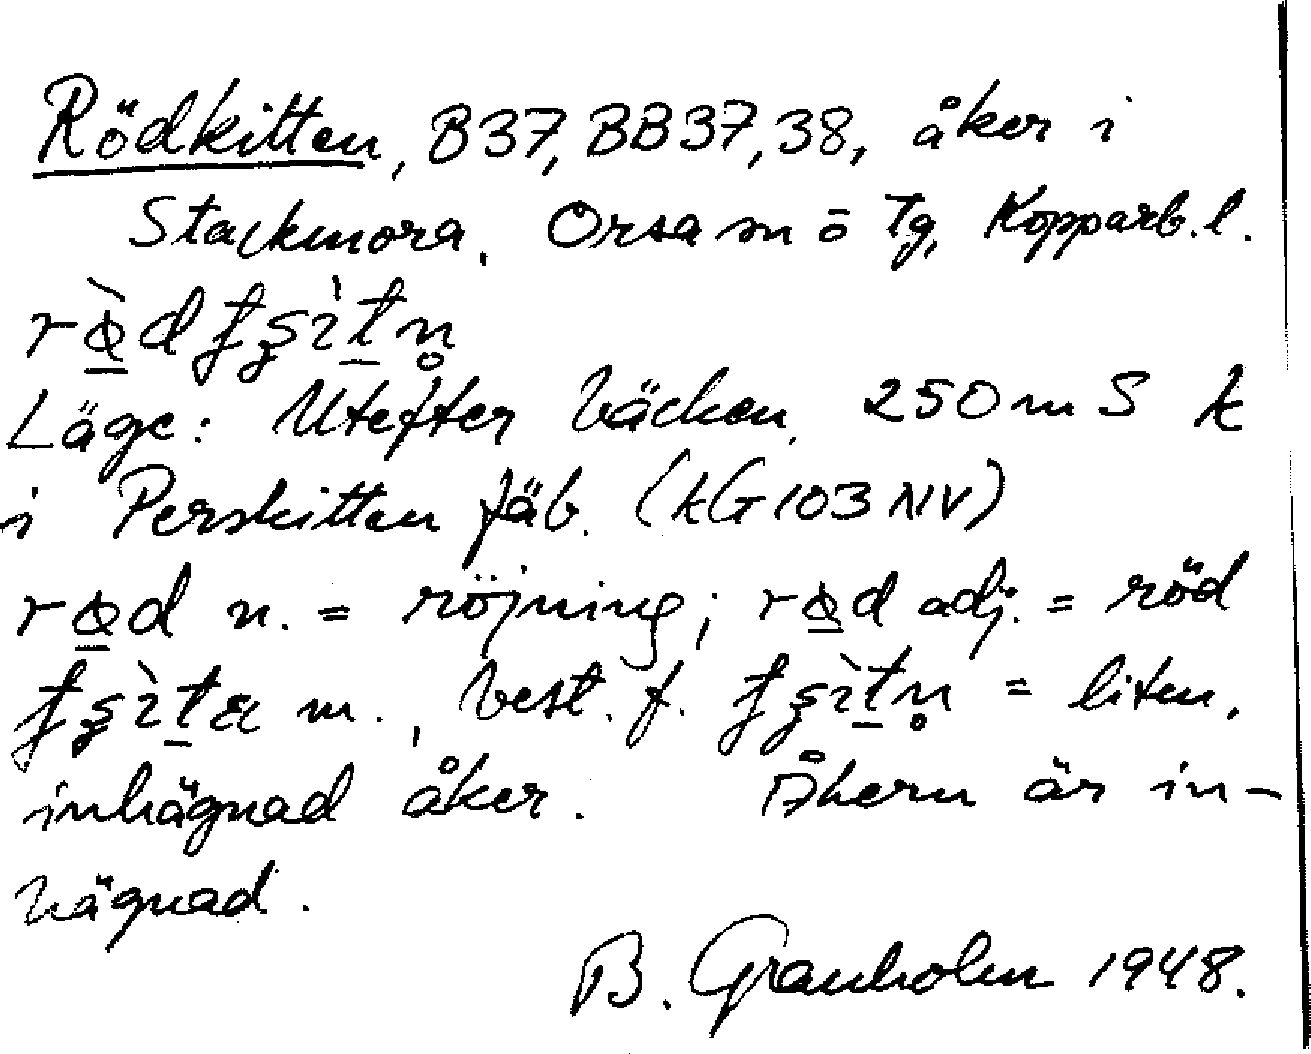 Rödkitten, B37, BB37, 38, åker i
Stackmora. Orsa sn ö Tg, Kopparb. l.
Läge: Utefter bäcken, 250 m S k
i Perskitten fäb. (kG 103 NIV)
n. = röjning; adj. = röd
m., best. f. = liten,
inhägnad åker. Åkern är in-
hägnad.
B. Granholm 1948.